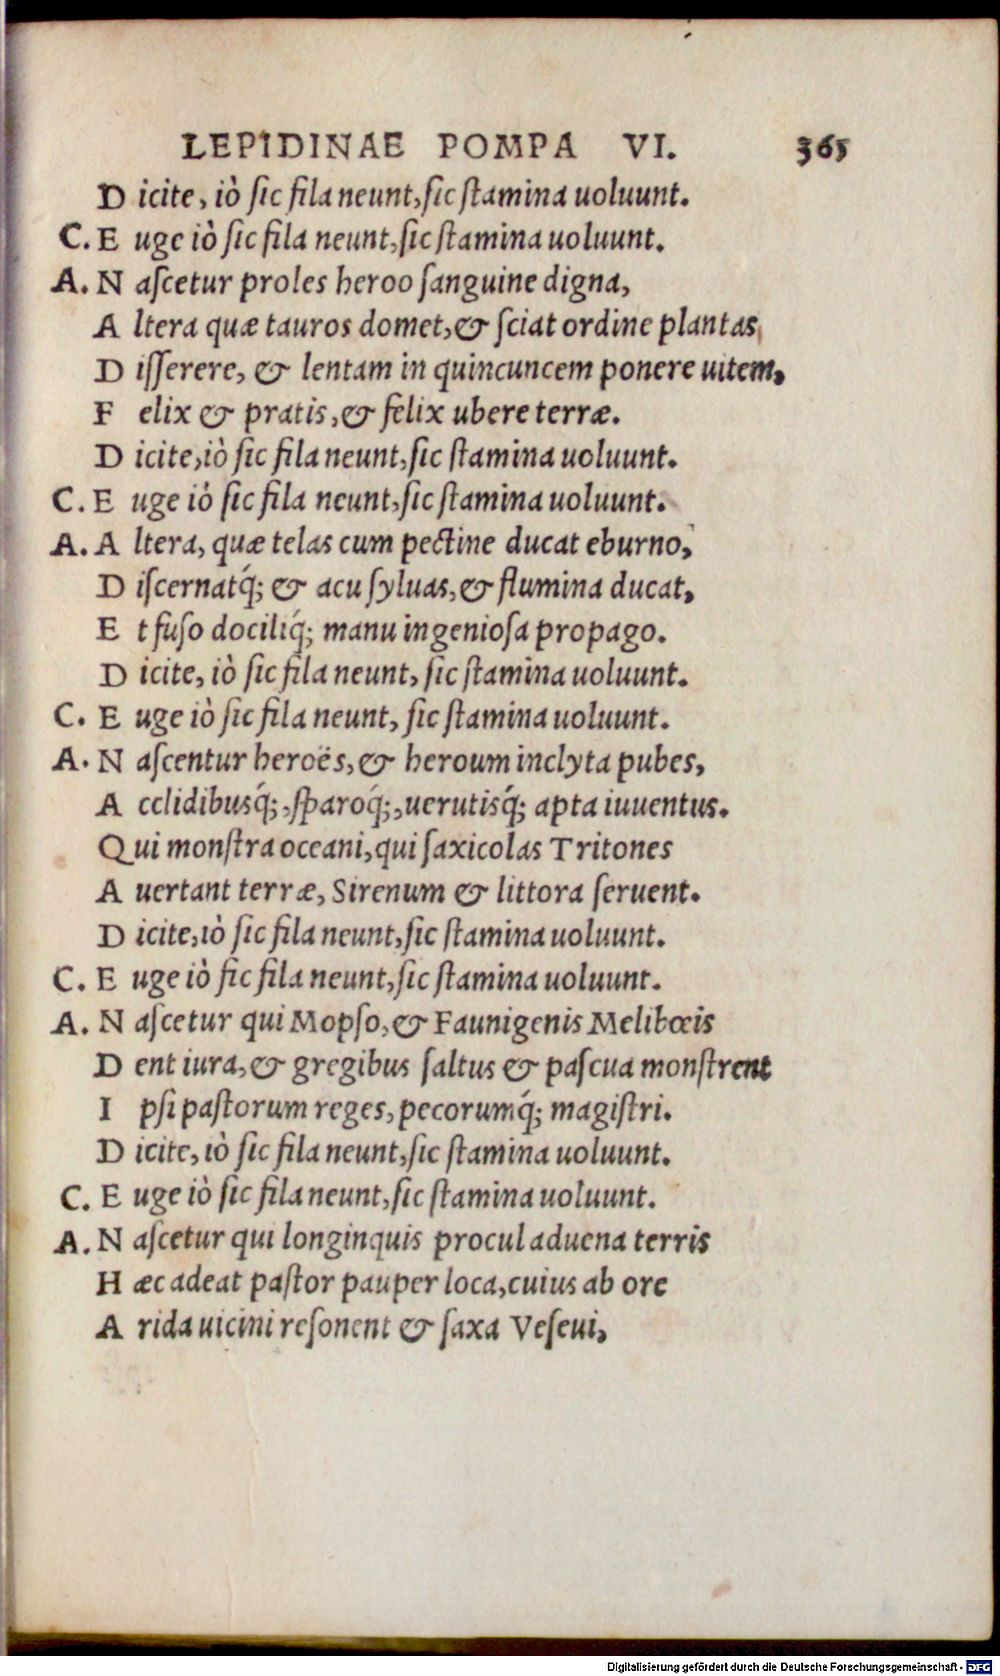 LEPIDINAE POMPA VI. 365
D icite, iò ſic fila neunt, ſic ſtamina uoluunt.
C. E uge iò ſic fila neunt, ſic ſtamina uoluunt.
A. N aſcetur proles heroo ſanguine digna,
A ltera quæ tauros domet, & ſciat ordine plantas
D iſſerere, & lentam in quincuncem ponere uitem,
F elix & pratis, & felix ubere terræ.
D icite, iò ſic fila neunt, ſic ſtamina uoluunt.
C. E uge iò ſic fila neunt, ſic ſtamina uoluunt.
A. A ltera, quæ telas cum pectine ducat eburno,
D iſcernatq́; & acu ſyluas, & flumina ducat,
E t fuſo dociliq́; manu ingenioſa propago.
D icite, iò ſic fila neunt, ſic ſtamina uoluunt.
C. E uge iò ſic fila neunt, ſic ſtamina uoluunt.
A. N aſcentur heroës, & heroum inclyta pubes,
A cclidibusq́;, ſparoq́;, uerutisq́; apta iuuentus.
Q ui monſtra oceani, qui ſaxicolas Tritones
A uertant terræ, Sirenum & littora ſeruent.
D icite, iò ſic fila neunt, ſic ſtamina uoluunt.
C. E uge iò ſic fila neunt, ſic ſtamina uoluunt.
A. N aſcetur qui Mopſo, & Faunigenis Melibœis
D ent iura, & gregibus ſaltus & paſcua monſtrent
I pſi paſtorum reges, pecorumq́; magiſtri.
D icite, iò ſic fila neunt, ſic ſtamina uoluunt.
C. E uge iò ſic fila neunt, ſic ſtamina uoluunt.
A. N aſcetur qui longinquis procul aduena terris
H æc adeat paſtor pauper loca, cuius ab ore
A rida uicini reſonent & ſaxa Veſeui,
Digitalisierung gefördert durch die Deutsche Forschungsgemeinschaft - DFG